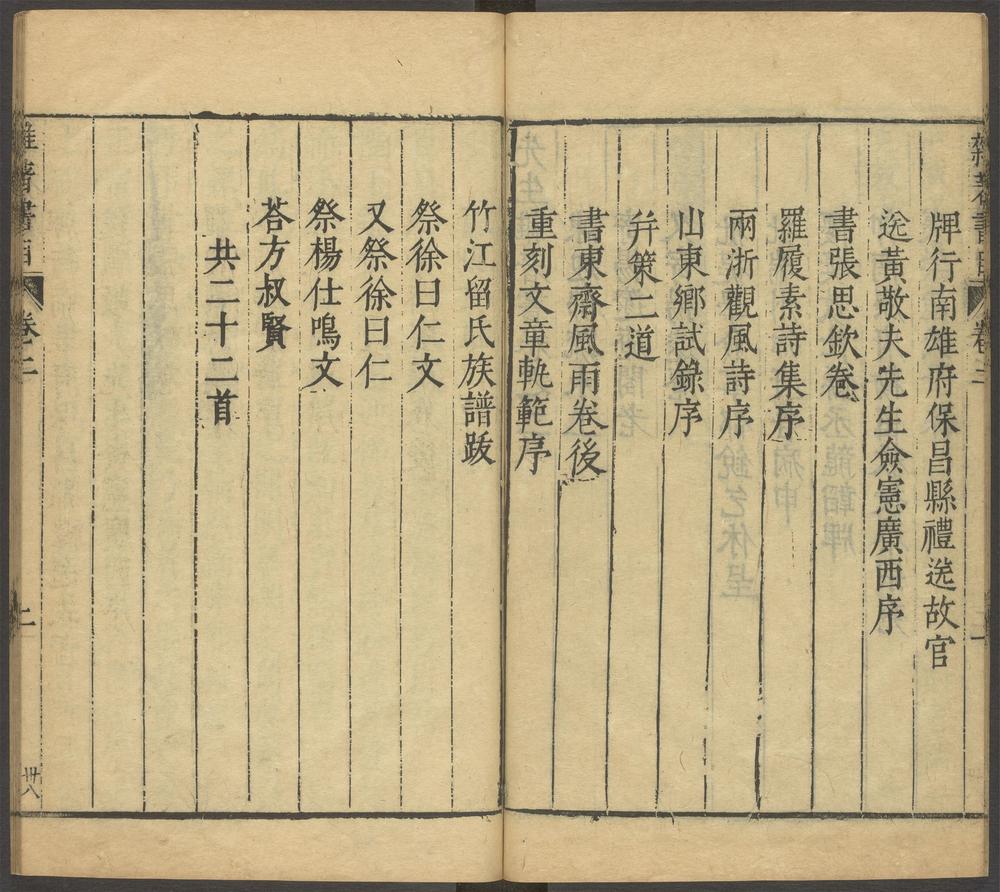 牌行南雄府保昌縣禮送故官
送黃敬夫先生僉憲廣西序
書張思欽卷
羅履素詩集序
兩浙觀風詩序
山東鄉試錄序
并策二道
書東齋風雨卷後
重刻文章軌範序
竹江留氏族譜跋
祭徐曰仁文
又祭徐曰仁
祭楊仕鳴文
荅方叔賢
共二十二首
卷二
二
卅八